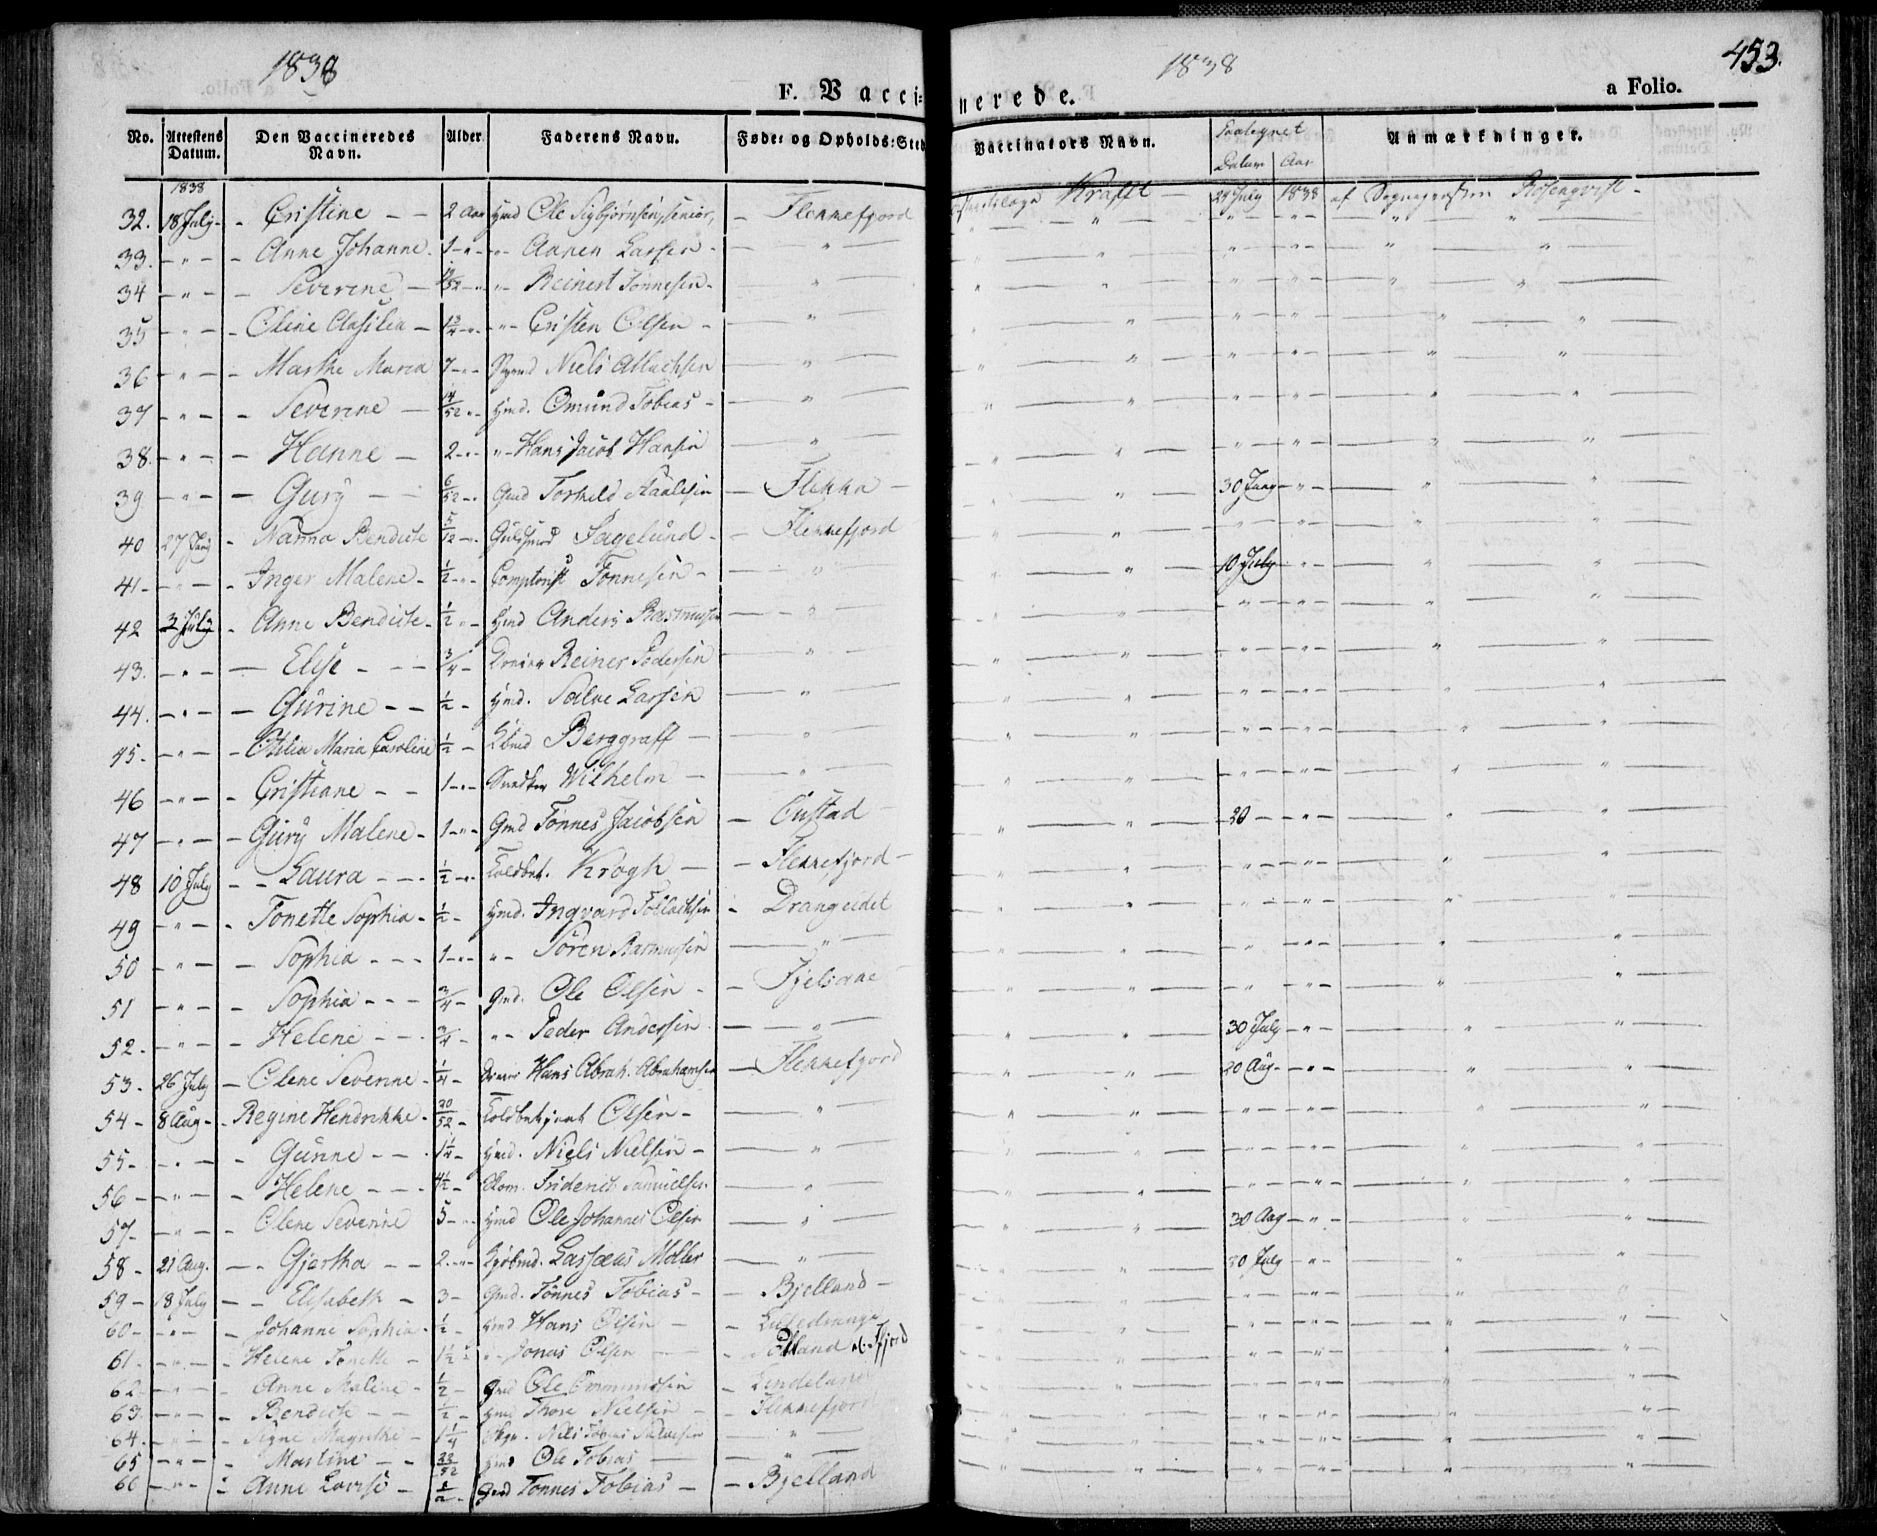 1838 1838 453.
F. Vaccinerede. a Folio.
No. Attestens Datum. Den Vaccineredes Navn. Alder. Faderens Navn. Føde- og Opholds-Sted Vaccinators Navn. Paategnet Datum Aar Anmærkninger.
1838
32. 18 July - Cristine - - 2 Aar Hmd Ole Sigbjørnsen, senior, - Flekkefjord Krafft - 24 July 1838 af Sognepresten Rosenqvist -
33. - " - - Anne Johanne. 1 - " - " - Aanen Larsen - - " -
34 - " - - Severine - /52 - " " - Reinert Tönnesen - "
35 - " - - Oline Elasilia - 1 3/4 - " - " - Cristen Olsen - - " -
36 - " - - Marthe Maria 7 - " - Niels Atlachsen - " -
37 - " - - Severine - 14/52 " - Hmd. Omund Tobias - - " -
38. - " - - Hanne - 2 - " - " - Hans Jacob Hansen "
39 - " - - Gury - - 6/52 - " Gmd Torkeld Aanesen - Flikka - 30 Juny - " -
40 27 Juny - Nanna Bendicte 5/12 - " - Guldsmed Fagelund - - Flekkefjord
41 - " - - Inger Malene - 1/2 - " - Comptorist Tönnesen - " 10 July - " -
42 3 July - Anne Bendicte - 1/2 " - Hmd Anders Rasmussen - " -
43. - " - - Elise - - - 3/4 - Reiner Pedersen - " -
44. - " - - Gurine - - 1/2 - Hmd. Salve Larsen - " -
45. - " - - Otilia Maria Caroline 1/2 - Kbmd Berggraff - "
46 - " - - Cristiane - - 1 - " - Snedker Wilhelm - - " -
47 - " - - Gury Malene - 1 - " - Gmd Tönnes Jacobsen - Oustad - 20 - " -
48 10 July - - Laura - - - 1/2 - " - Toldbet. Krogh - - Flekkefjord -
49 - " - - Tonette Sophia - 1/2 - Hmd. Ingvard Tollachsen - Drangeidet
50 - " - - Sophia - - - 1 - " - " - Sören Rasmussen - " -
51 - " - - Sophia - - - 3/4 - Gmd. Ole Olsen - - Fjelsaae
52 - " - - Helene - - - 3/4 - " - Peder Andersen - " - 30 July - " -
53 - 26 July - Olene Severine - 1/4 - Hans Abrah. Abrahamsen - Flekkefjord 20 Aug - - " -
54 - 8 Aug - - Regine Hendrikke - 20/52 - Toldbetjent Olsen - - " -
55 - " - - Gunne - - 1 1/4 - Hmd. Niels Nielsen - - " -
56 - " - - Helene - - - 4 1/2 - Friderich Samuelsen. - " -
57 - " - - Olene Severine 5 - " - Hmd Ole Johannes Olsen - " - 30 Aug - " -
58 - 21 Aug. - - Gjertha - - 2. - " - Kjøbmd. Lassæus Möller - " - 20 July - " -
59 - 18 July - - Elisabeth - 3 - Gmd. Tönnes Tobias - - Bjelland -
60 - " - - Johanne Sophia - 1/2 - Hmd Hans Olsen - - Lilledrange
61 - " - - Helene Tonette - 1 1/2 - " - Jonas Olsen - -
62 - " - - Anne Malene - 1/2 - Gmd Ole Ommundsen -
63 - " - - Bendicte - - 1/2 - Hmd Thore Nielsen - - Flekkefjord
64 - " - - Signe Magrethe - 1 1/4 Niels Tobias Salvesen - " -
65 - " - - Martine - - 22/52 Hmd Ole Tobias - - " -
66 - " - - Anne Lovise - 1/2 - Gmd Tönnes Tobias - - Bjelland